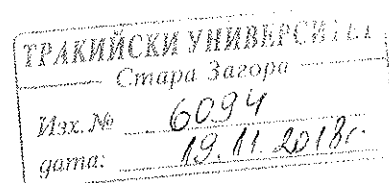 ТРАКИЙСКИ УНИВЕРСИТЕТ
Стара Загора
Изх. № 6094
дата: 19.11.2018г.